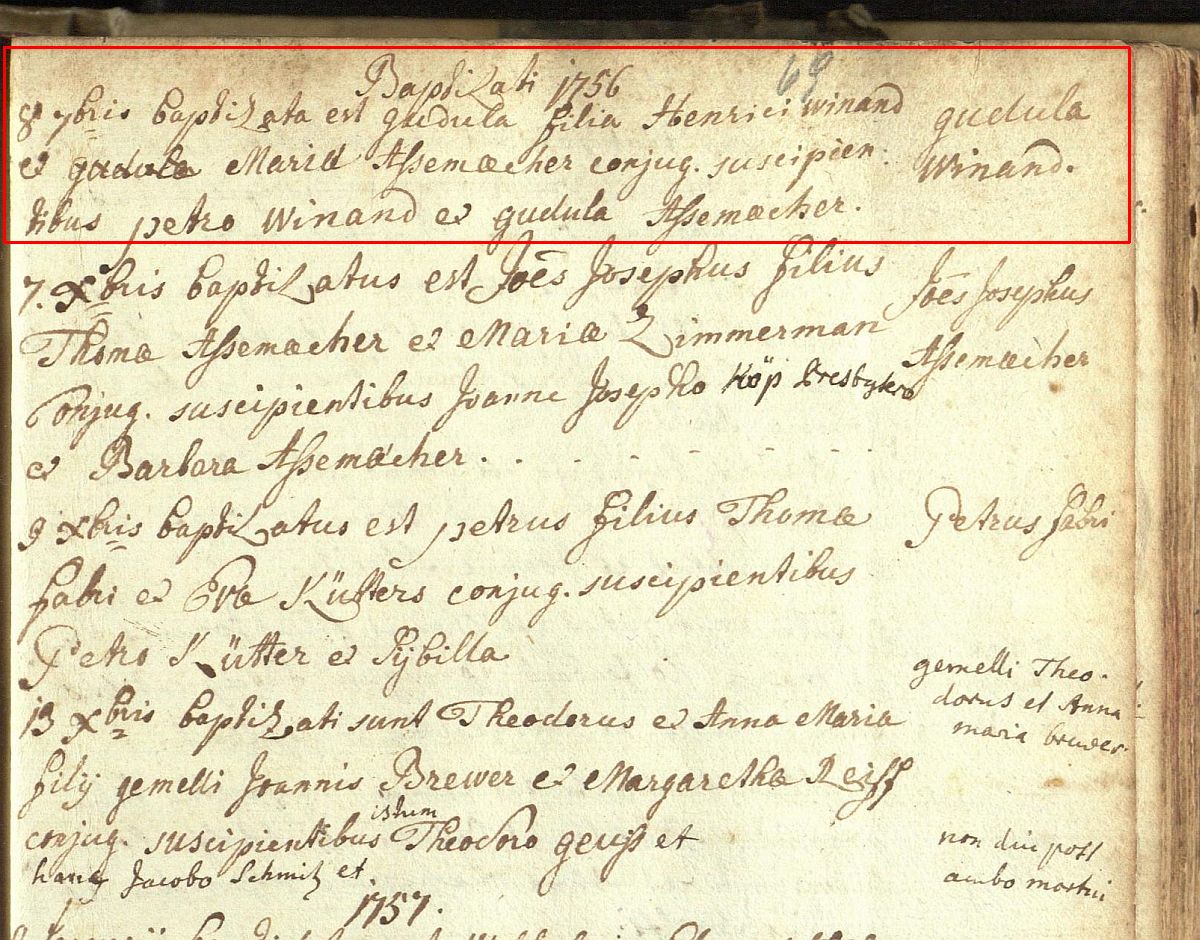 Baptizati 1756
69
8 7bris baptizata est gudula filia Henrici Winand
gudula
et gudula Maria Assemacher conjug. suscipien-
Winand.
tibus petro Winand et gudula Assemacher.
7. Xbris baptizatus est Joēs Josephus filius
Joēs Josephus
Thomæ Assemacher et Mariæ Zimmerman
Assemæcher
Conjug. suscipientibus Joanne Josepho Köp Presbytero
et Barbara Assemæcher . . - - - - - -
9 Xbris baptizatus est petrus filius Thomæ
Petrus fabri
fabri et Evæ Küffers conjug. suscipientibus
Petro Kütter et Sÿbilla
gemelli Theo-
13 Xbris baptizati sunt Theodorus et Anna Maria
dorus et Anna
maria brewer
filij gemelli Joannis Brewer et Margarethæ Reiff
istum
conjug. suscipientibus Theodoro et
non diu post
hanc Jacobo Schmitz et
ambo mortui
1757.